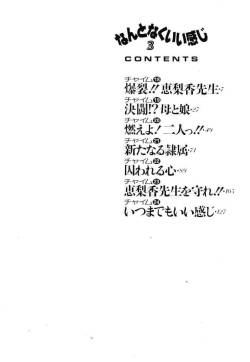 なんとなくいい感じ
3
CONTENTS
チャイム⑱
爆裂!! 恵梨香先生・7
チャイム⑲
決闘!? 母と娘・27
チャイム⑳
燃えよ! 二人っ!!・49
チャイム㉑
新たなる隷属・71
チャイム㉒
囚われる心・89
チャイム㉓
恵梨香先生を守れ!!・107
チャイム㉔
いつまでもいい感じ・127